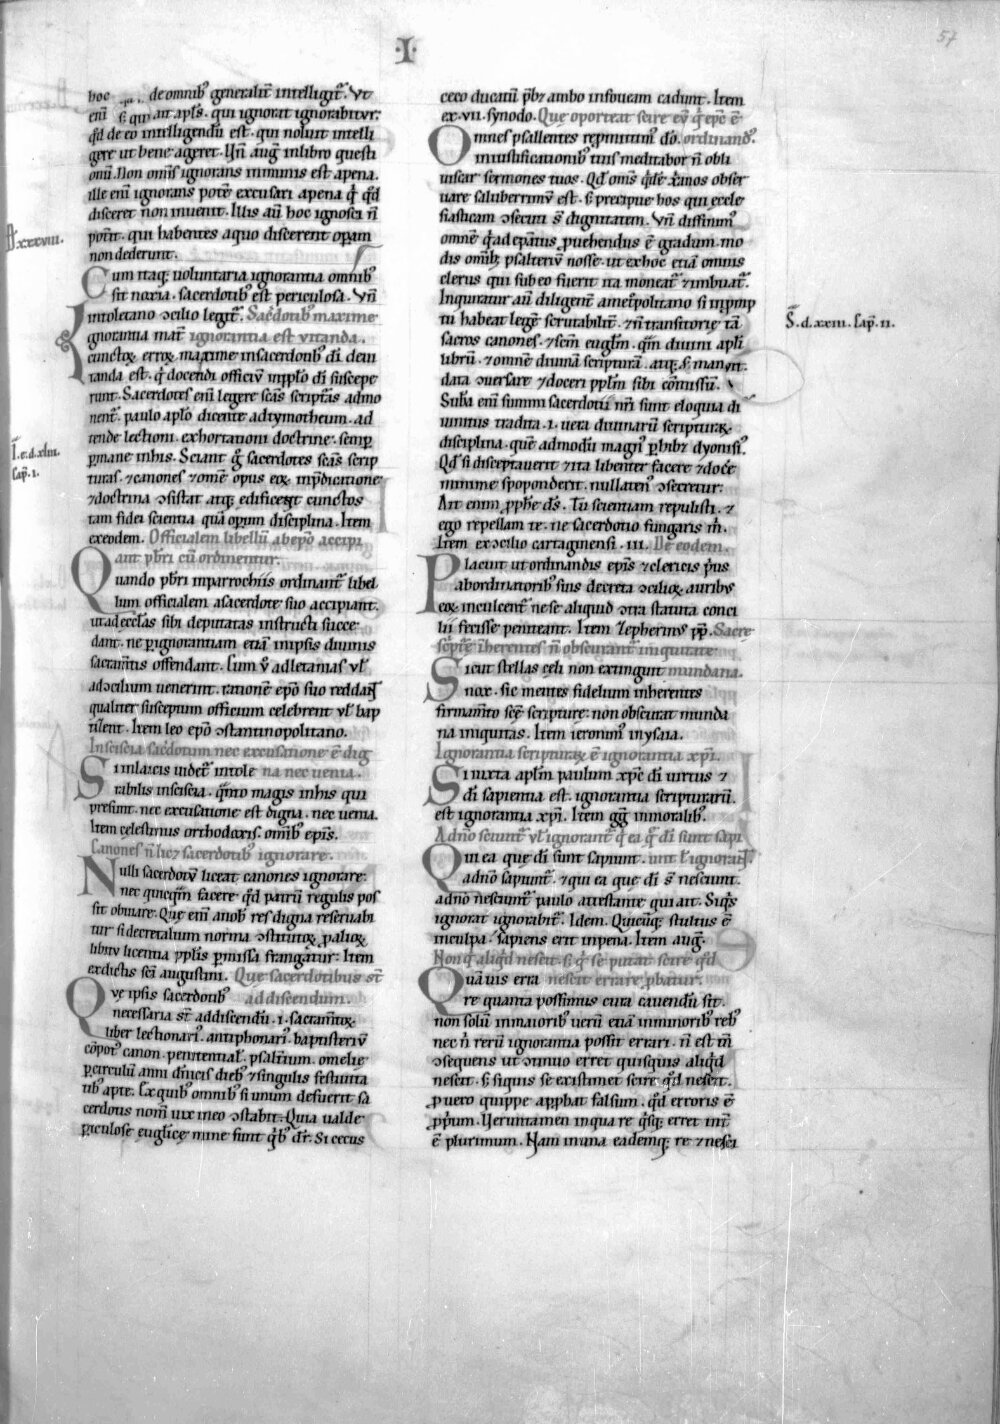 57
·I·
hoc de omnibꝰ generalit̄ intelligit᷑. Vt
eni͂ ait apl̄s. qui ignorat ignorabitur.
qđ de eo intelligendū est. qui noluit intelli
gere ut bene ageret. Vn̄ aug̅ in libro questi
onū. Non omīs ignorans inmunis est a pena.
ille eni͂ ignorans potē excusari a pena q̇ qđ
disceret non inuenit. Illis aū hoc ignosci n̄
pot̄it. qui habentes a quo discerent opam
non dederunt.
D.xxxviii.
Cum itaq; uoluntaria ignorantia omnibꝰ
sit noxia. sacerdotibꝰ est periculosa. Vn̄
in toletano ɔcilio legit᷑. Sac̄dotibꝰ maxime
Ignorantia mat̄ ignorantia est uitanda.
cunctoꝝ erroꝝ maxime in sacerdotibꝰ di͂ deui
tanda est. q̇ docendi officiū in pp̄lo di͂ suscepe
runt. Sacerdotes eni͂ legere sc̄as script᷑as admo
nent᷑. paulo apl̄o dicente ad tymotheum. ad
tende lectioni. exhortationi doctrine. semp̱
p̱mane in his. Sciant ḡ sacerdotes sc̄as scrip
turas. ⁊ canones ⁊ omē opus eoꝝ in p̄dicatione
⁊ doctrina ɔsistat atq; edificent cunctos
tam fidei scientia quā opum disciplina. Item
ex eodem. Officialem libellū ab ep̄o accipi
ant pb̄ri cū ordinentur.
Quando pb̄ri in parrochiis ordinant᷑ libel
lum officialem a sacerdote suo accipiant.
ut ad eccl̄as sibi deputatas instructi succe
dant. ne p̱ ignorantiam etiā in ipsis diuinis
sacram̄tis offendant. Cum v̄ ad letanias ul̄
ad ɔcilium uenerint. rationē ep̄o suo reddant
qualiter susceptum officium celebrent ul̄ bap
tizent. Item leo ep̄o ɔstantinopolitano.
Inscitia sac̄dotum nec excusatione ē dig
Si in laicis uidet᷑ intole na nec uenia.
rabilis inscitia. q̄nto magis in his qui
presunt. nec excusatione est digna. nec uenia.
Item celestinus orthodoxis. om̄ibꝰ ep̄is.
Canones n̄ licꝫ sacerdotibꝰ ignorare.
Nulli sacerdotū liceat canones ignorare.
nec quicq̄m facere qđ patrū regulis pos
sit obuiare. Que eni͂ a nobꝰ res digna seruabi
tur si decretalium norma ɔstitutoꝝ p̱ alioꝝ
libitū licentia pp̄lis p̱missa frangatur. Item
ex dictis sc̄i augustini. Que sacerdotibus st̄
Que ipsis sacerdotibꝰ ad discendum.
necessaria st̄ ad discendū. i. sacram̄toꝝ
liber lectionari. antiphonari. baptisteriū
cōpotꝰ canon. penitential̄. psalt̄ium. omelie
p̱ circulū anni dn̄icis diebꝰ ⁊ singulis festiuita
tibꝰ apte. Ex quibꝰ omnibꝰ si unum defuerit sa
cerdotis nom̄ uix in eo ɔstabit. Quia ualde
p̱iculose eugl̄ice mine sunt q̇bꝰ dr̄. Si cecus
ceco ducatū p̄bꝫ ambo in foueam cadunt. Item
ex .vii. synodo. Que oporteat scire eū q̇ ep̄c ē
Omnes psallentes rep̱mittimꝰ dō. ordinandꝰ.
in iustificationibꝰ tuis meditabor n̄ obli
uiscar sermones tuos. Qđ om̄s q̇dē xp̄ianos obser
uare saluberrimū est. s; precipue hos qui eccle
siasticam ɔsecuti s̄t dignitatem. Vn̄ diffinimꝰ
omnē q̇ ad ep̄atus ꝓuehendus ē gradum. mo
dis omnibꝫ psalteriū nosse. ut ex hoc etiā omnis
clerus qui sub eo fuerit ita moneat᷑ ⁊ imbuat᷑.
Inquiratur aū diligent̄ a met̄politano si in ꝓmp
tu habeat legē scrutabilit̄. ⁊ n̄ transitorie tā
sacros canones. ⁊ sc̄m eugl̄m. q̄m diuini apl̄i
librū. ⁊ omnē diuinā scripturā. atq; s; man
data ɔuersare ⁊ doceri pp̄lm sibi cōmissū.
S. d. xxiii. Cap̄. ii.
Suba eni͂ summi sacerdotii nr̄i sunt eloquia di͂
uinitus tradita. i. uera diuinarū scripturaꝝ
disciplina. quē admodū magnꝰ p̱hibꝫ dyonisiꝰ.
Qđ si disceptauerit ⁊ ita libenter facere ⁊ docē
minime spoponderit. nullatenꝰ ɔsecretur.
Ait enim ꝓph̄e d̄s. Tu scientiam repulisti. ⁊
ego repellam te. ne sacerdotio fungaris m̄.
Item ex ɔcilio cartaginensi .iii. De eodem.
Placuit ut ordinandis ep̄is ⁊ clericis p̄ius
ab ordinatoribꝰ suis decreta ɔcilioꝝ auribꝰ
eoꝝ inculcent᷑ ne se aliquid ɔtra statuta conci
lii fecisse peniteant. Item Zepherinꝰ pp̄. Sacre
sc̄pt᷑e inherentes n̄ obscurant iniquitate
Sicut stellas celi non extingunt mundana.
nox. sic mentes fidelium inherentes
firmam̄to sc̄e scripture. non obscurat munda
na iniquitas. Item ieronimꝰ in ysaia.
Ignorantia scripturaꝝ ē ignorantia xp̄i.
Si iuxta apl̄m paulum xp̄c di͂ uirtus ⁊
di͂ sapientia est. ignorantia scripturarū.
est ignorantia xp̄i. Item gg̅ in moralibꝰ.
A dn̄o sciunt᷑ ul̄ ignorant᷑ q̇ ea q̄ di͂ sunt sapi
Qui ea que di͂ sunt sapiunt. unt ul̄ ignorant.
a dn̄o sapiunt᷑. ⁊ qui ea que di͂ s̄t nesciunt.
a dn̄o nesciunt᷑ paulo attestante qui ait. Siq̇s
ignorat ignorabit᷑. Idem. Quicūq; stultus ē
in culpa. sapiens erit in pena. Item aug̅.
Non q̇ aliqđ nescit. s; q̇ se putat scire qđ
Quāuis erra nescit errare ꝓbatur.
re quanta possimus cura cauendū sit.
non solū in maioribꝰ uerū etiā in minoribꝰ rebꝰ
nec n̄ rerū ignorantia possit errari. n̄ est tn̄
ɔsequens ut ɔtinuo erret quisquis aliqđ
nescit. s; siquis se existimet scire qđ nescit.
ꝓ uero quippe ap̱p̱bat falsum. qđ erroris ē
ꝓp̱um. Verumtamen in qua re q̇sq; erret int̄
ē plurimum. Nam in una eademq; re ⁊ nesci